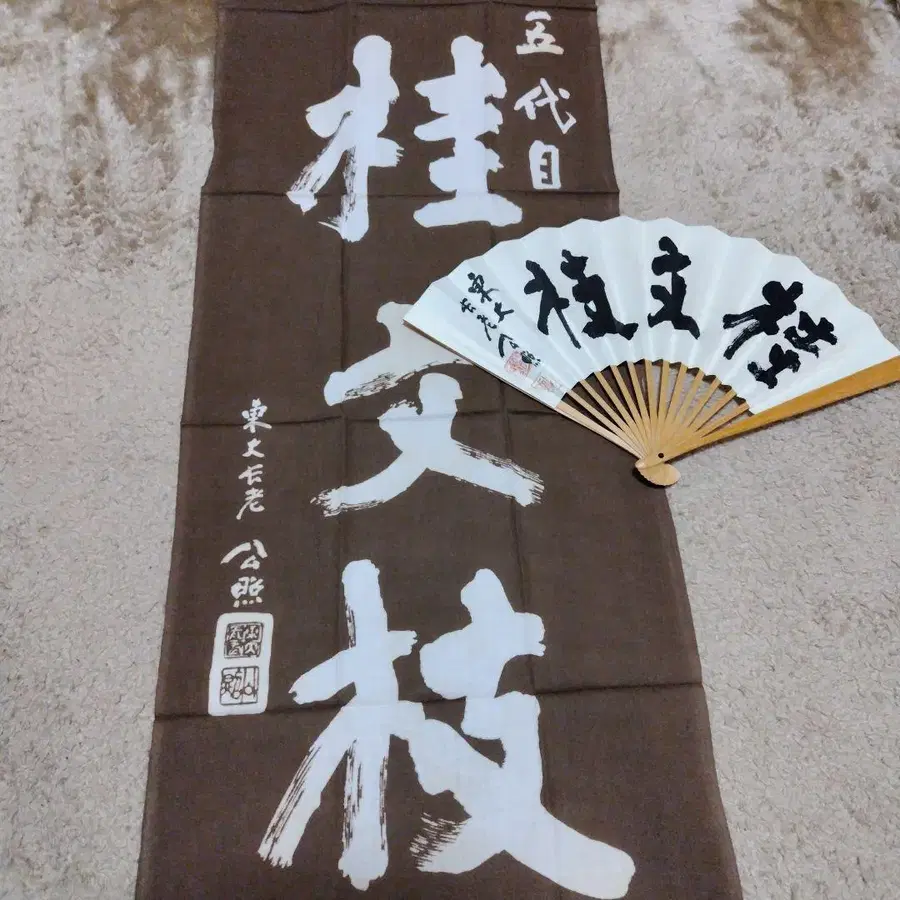 五代目
桂文枝
東大長老 公照
桂文枝
東大長老公照